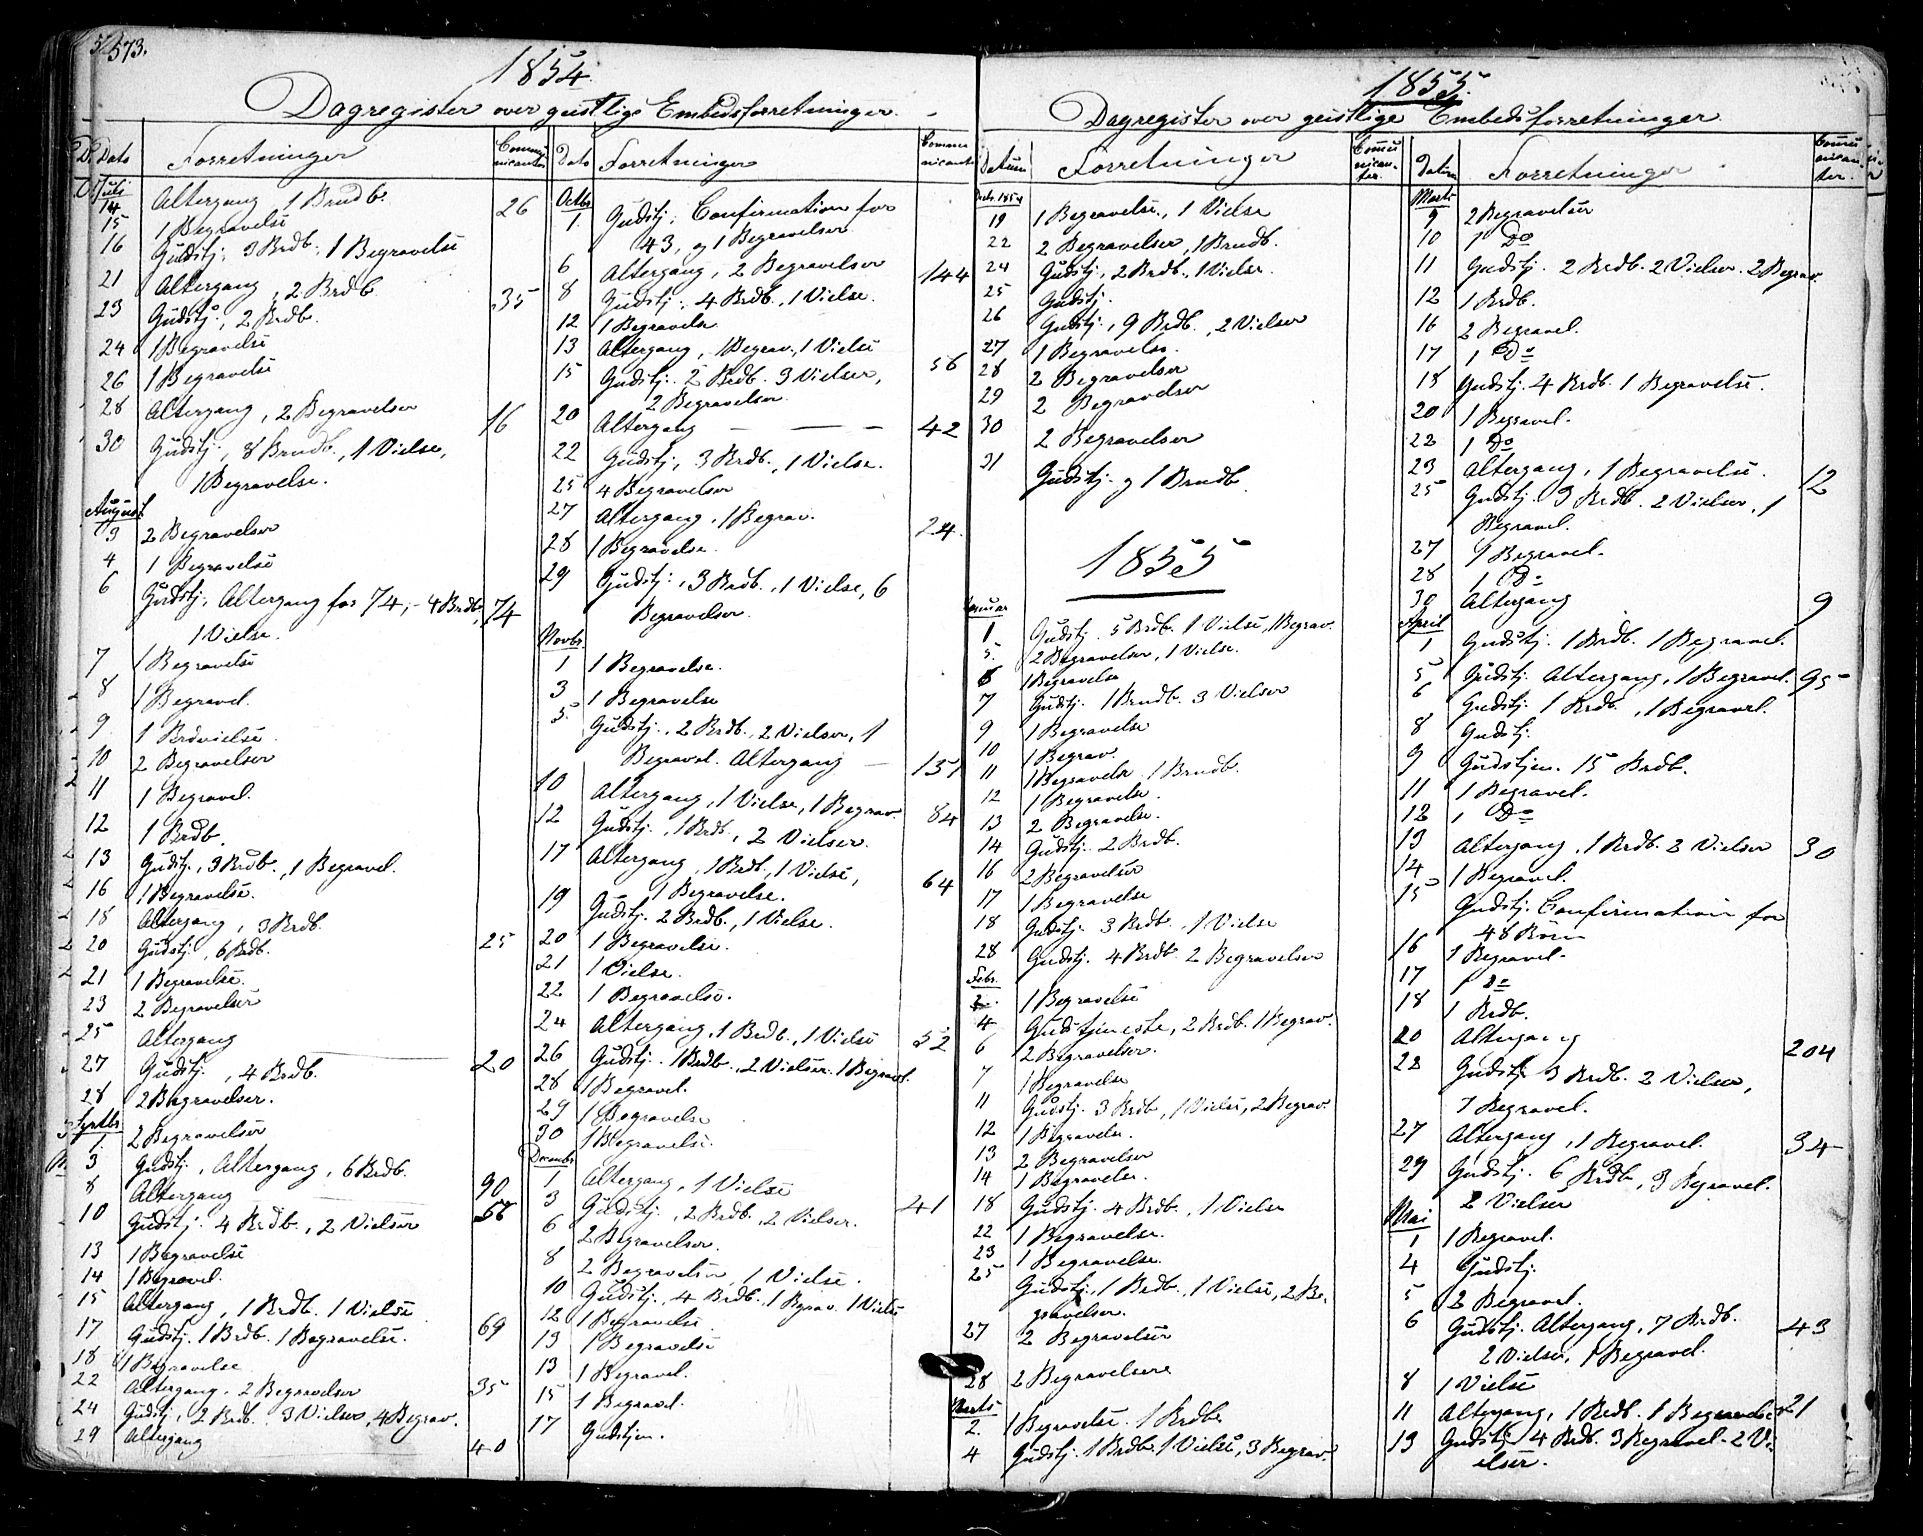 573.
1854.
Dagregister over geistlige Embedsforretninger.
Dato Forretninger Communicanter
Juli
14 Altergang 1 Brudb. 26
15 1 Begravelse
16 Gudstj: 3 Brdb: 1 Begravelse
21 Altergang, 2 Brdb. 35
23 Gudstj:, 2 Brdb.
24 1 Begravelse
26 1 Begravelse
28 Altergang, 2 Begravelser 16
30 Gudstj:, 8 Brudb., 1 Vielse,
1 Begravelse.
August
3 2 Begravelser
4 1 Begravelse
6 Gudstj. Altergang for 74, - 4 Brdb, 74
1 Vielse.
7 1 Begravelse
8 1 Begravel.
9 1 Brdvielse.
10 2 Begravelser
11 1 Begravel.
12 1 Brdb.
13 Gudstj., 3 Brdb., 1 Begravel.
16 1 Begravelse.
18 Altergang, 3 Brdb. 25
20 Gudstj., 6 Brdb.
21 1 Begravelse.
23 2 Begravelser
25 Altergang 20
27 Gudstj., 4 Brdb.
28 2 Begravelser.
Septbr
1. 2 Begravelser
3 Gudstj., Altergang, 6 Brdb. 90
8 Altergang 58
10 Gudstj. 4 Brdb., 2 Vielser
13 1 Begravelse
14 1 Begravel.
15 Altergang, 1 Brdb. 1 Vielse 69
17 Gudstj. 1 Brdb. 1 Begravelse.
18 1 Begravelse
22 Altergang, 2 Begravelser 35
24 Gudstj, 2 Brdb. 3 Vielser, 4 Begrav.
29 Altergang 40
Dato Forretninger Communicanter
Octbr
1. Gudstj. Confirmation for
43, og 1 Begravelser
6 Altergang, 2 Begravelser 144
8 Gudstj:, 4 Brdb., 1 Vielse.
12 1 Begravelse
13 Altergang, 1 Begrav., 1 Vielse 56
15 Gudstj. 2 Brdb. 3 Vielser,
2 Begravelser.
20 Altergang 42
22 Gudstj, 3 Brdb., 1 Vielse.
25 4 Begravelser
27 Altergang, 1 Begrav. 24.
28 1 Begravelse.
29 Gudstj:, 3 Brdb., 1 Vielse, 6
Begravelser.
Novbr
1 1 Begravelse.
3 1 Begravelse
5. Gudstj., 2 Brdb., 2 Vielser, 1
Begravel. Altergang 151
10 Altergang, 1 Vielse, 1 Begrav 84
12 Gudstj., 1 Brdb., 2 Vielser.
17 Altergang, 1 Brdb., 1 Vielse, 64
1 Begravelse.
19 Gudstj. 2 Brdb., 1 Vielse.
20 1 Begravelse.
21 1 Vielse.
22 1 Begravelse.
24 Altergang, 1 Brdb., 1 Vielse 52
26 Gudstj. 1 Brdb., 2 Vielser. 1 Begravel.
28 1 Begravel.
29 1 Begravelse
30 1 Begravelse.
Decembr
1 Altergang, 1 Vielse 41
3 Gudstj., 2 Brdb., 2 Vielser.
6 2 Begravelser.
8 2 Begravelser, 1 Vielse.
10 Gudstj., 4 Brdb., 1 Bgrav. 1 Vielse
12 1 Begravelse
13 1 Begravelse
13 1 Begravel.
15 1 Begravel.
17 Gudstjen.
1855.
Dagregister over geistlige Embedsforretninger.
Datum Forretninger Communicanter.
Decb. 1854
19 1 Begravelse., 1 Vielse
22 2 Begravelser, 1 Brudb.
24 Gudstj, 2 Brdb., 1 Vielse.
25 Gudstj.
26 Gudstj., 9 Brdb., 2 Vielser
27 1 Begravelse.
28 2 Begravelser
29 2 Begravelser
30 2 Begravelser
31 Gudstj. og 1 Brudb.
1855
Januar
1 Gudstj. 5 Brdb. 1 Vielse, 1 Begrav.
5. 2 Begravelser, 1 Vielse.
6 1 Begravelse
7 Gudstj. 1 Brudb. 3 Vielser
9 1 Begravelse
10 1 Begrav.
11 1 Begravelse 1 Brudb.
12 1 Begravelse.
13 2 Begravelse.
14 Gudstj. 2 Brdb.
16 2 Begravelser
17 1 Begravelse
18 Gudstj. 3 Brdb., 1 Vielse
28 Gudstj. 4 Brdb. 2 Begravelser
Febr.
2. 1 Begravelse
4 Gudstjeneste, 2 Brdb. 1 Begrav.
6 2 Begravelser.
7 1 Begravelse
11 Gudstj. 3 Brdb, 1 Vielse, 2 Begrav.
12 1 Begravelse.
13 2 Begravelser
14 1 Begravelse.
18 Gudstj. 4 Brdb., 1 Vielse
22 1 Begravelse.
23 1 Begravelse.
25 Gudstj., 1 Brdb., 1 Vielse, 2 Be-
gravelser.
27 2 Begravelser
28 2 Begravelsere
Marts
2. 1 Begravelse. 1 Brdb.
4 Gudstj. 1 Brdb. 1 Vielse, 3 Begrav.
Datum Forretninger Communicanter.
Marts
9 2 Begravelser
10 1 Do
11 Gudstj. 2 Brdb. 2 Vielser. 2 Begrav.
12 1 Brdb.
16 2 Begravel.
17 1 Do
18 Gudstj. 4 Brdb. 1 Begravelse.
20 1 Begravel.
22 1 Do
23 Altergang, 1 Begravelse. 12
25 Gudstj. 3 Brdb. 2 Vielser, 1
Begravel.
27 1 Begravel.
28 1 Do
30 Altergang 9
April
1 Gudstj. 1 Brdb. 1 Begravel.
5 Gudstj. Altergang, 1 Begravel. 95
6 Gudstj. 1 Brdb., 1 Begravel.
8 Gudstj.
9 Gudstjen. 15 Brdb.
11 1 Begravel.
12 1 Do
13 Altergang, 1 Brdb. 2 Vielser 30
14 1 Begravel.
15 Gudstj. Confirmation for
48 Børn
16 1 Begravel.
17 1 Do
18 1 Brdb.
20 Altergang 204
22 Gudstj. 3 Brdb. 2 Vielser,
7 Begravel.
27 Altergang, 1 Begravel. 34
29 Gudstj. 6 Brdb, 3 Begravel.
2 Vielser
Mai
1 1 Begravel.
4 Gudstj.
5 2 Begravel.
6 Gudstj. Altergang, 7 Brdb. 43
2 Vielser, 1 Begravel.
8 1 Vielse
11 Altergang, 1 Brdb. 1 Begravelse 21
13 Gudstj. 4 Brdb. 3 Begravel. 2 Vi-
elser.